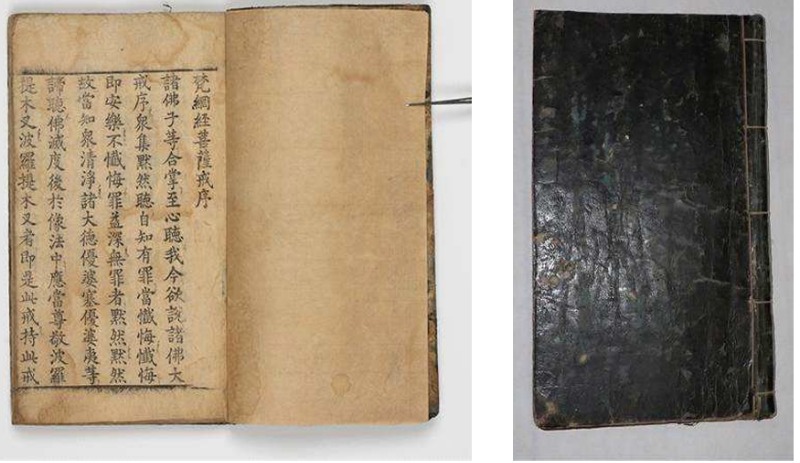 梵網経菩薩戒序
諸佛子等合掌至心聽我今欲說諸佛大
戒序衆集黙然聽自知有罪當懺悔懺悔
即安樂不懺悔罪益深無罪者黙然黙然
故當知衆清淨諸大德優婆塞優婆夷等
諦聽佛滅度後於像法中應當尊敬波羅
提木叉波羅提木叉者即是此戒持此戒